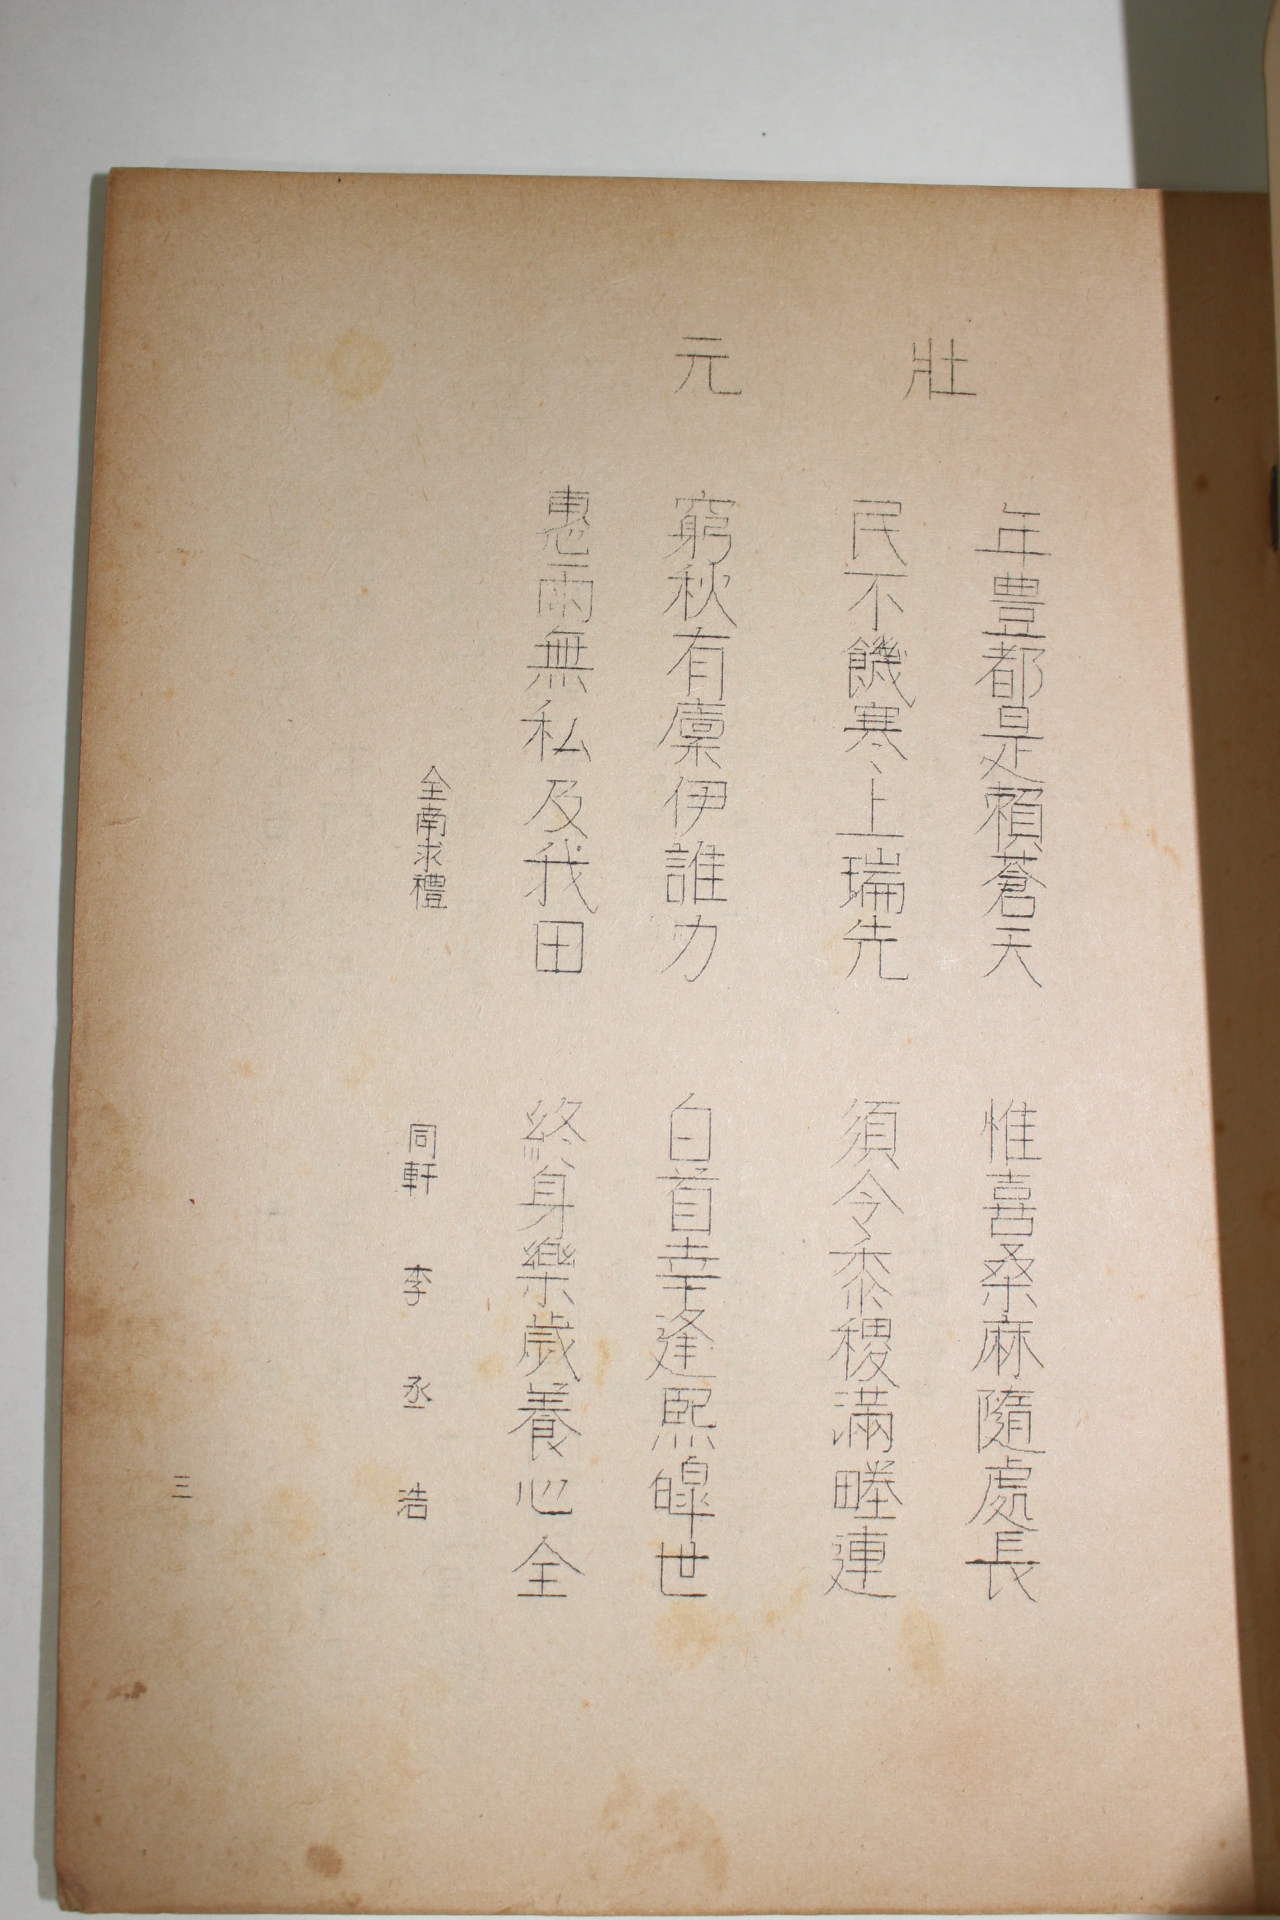 壯元
年豊都是賴蒼天 惟喜桑麻隨處長
民不饑寒上瑞先 須令黍稷滿畦連
窮秋有廩伊誰力 白首幸逢熙皥世
惠雨無私及我田 終身樂歲養心全
全南求禮 同軒 李丞浩
三